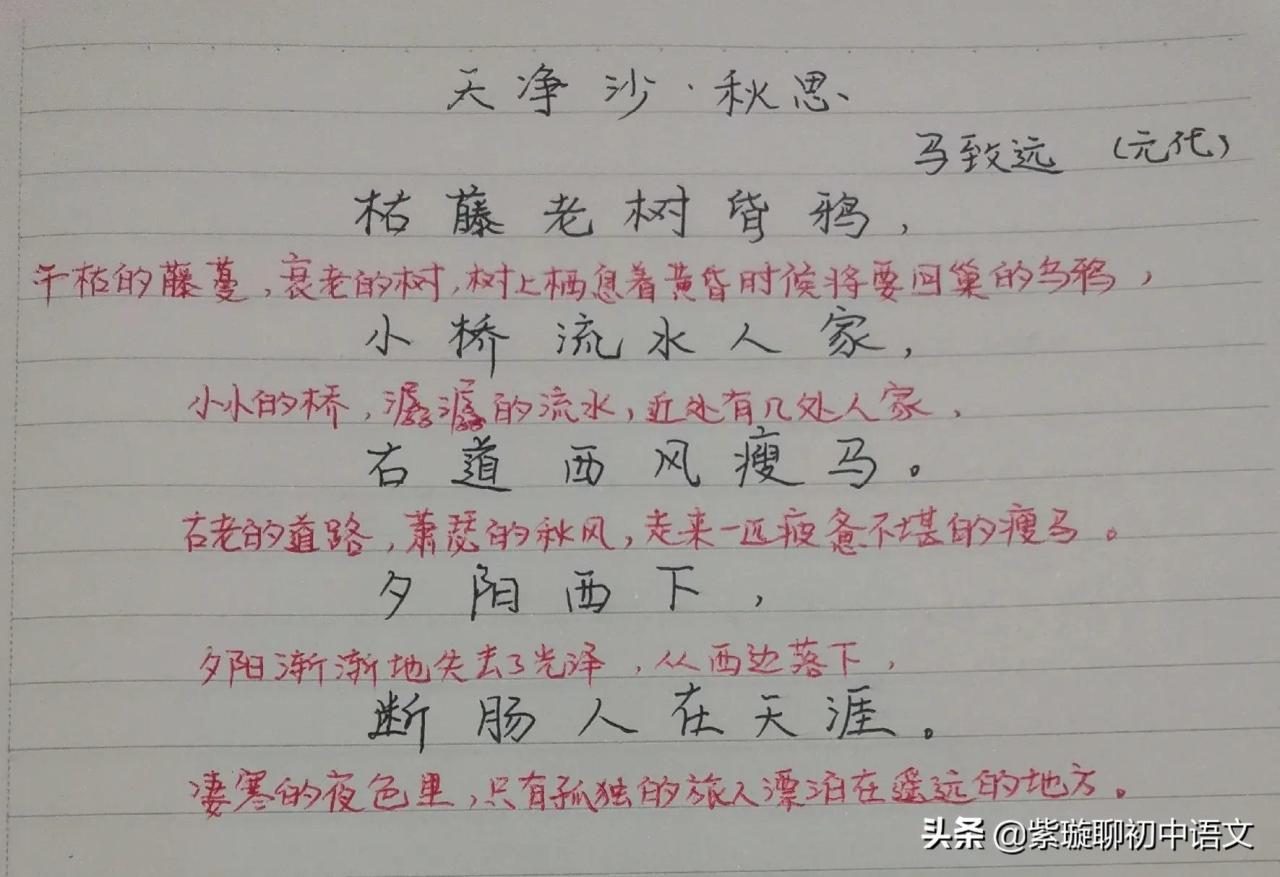 天净沙·秋思
马致远 (元代)
枯藤老树昏鸦,
干枯的藤蔓,衰老的树,树上栖息着黄昏时候将要回巢的乌鸦,
小桥流水人家,
小小的桥,潺潺的流水,近处有几处人家,
古道西风瘦马。
古老的道路,萧瑟的秋风,走来一匹疲惫不堪的瘦马。
夕阳西下,
夕阳渐渐地失去了光泽,从西边落下,
断肠人在天涯。
凄寒的夜色里,只有孤独的旅人漂泊在遥远的地方。
头条 @紫璇聊初中语文